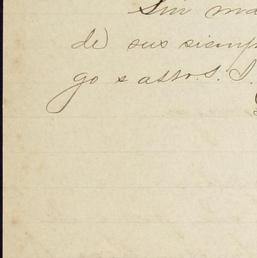 Sin ma
de sus siemp
go s atto. S. S.